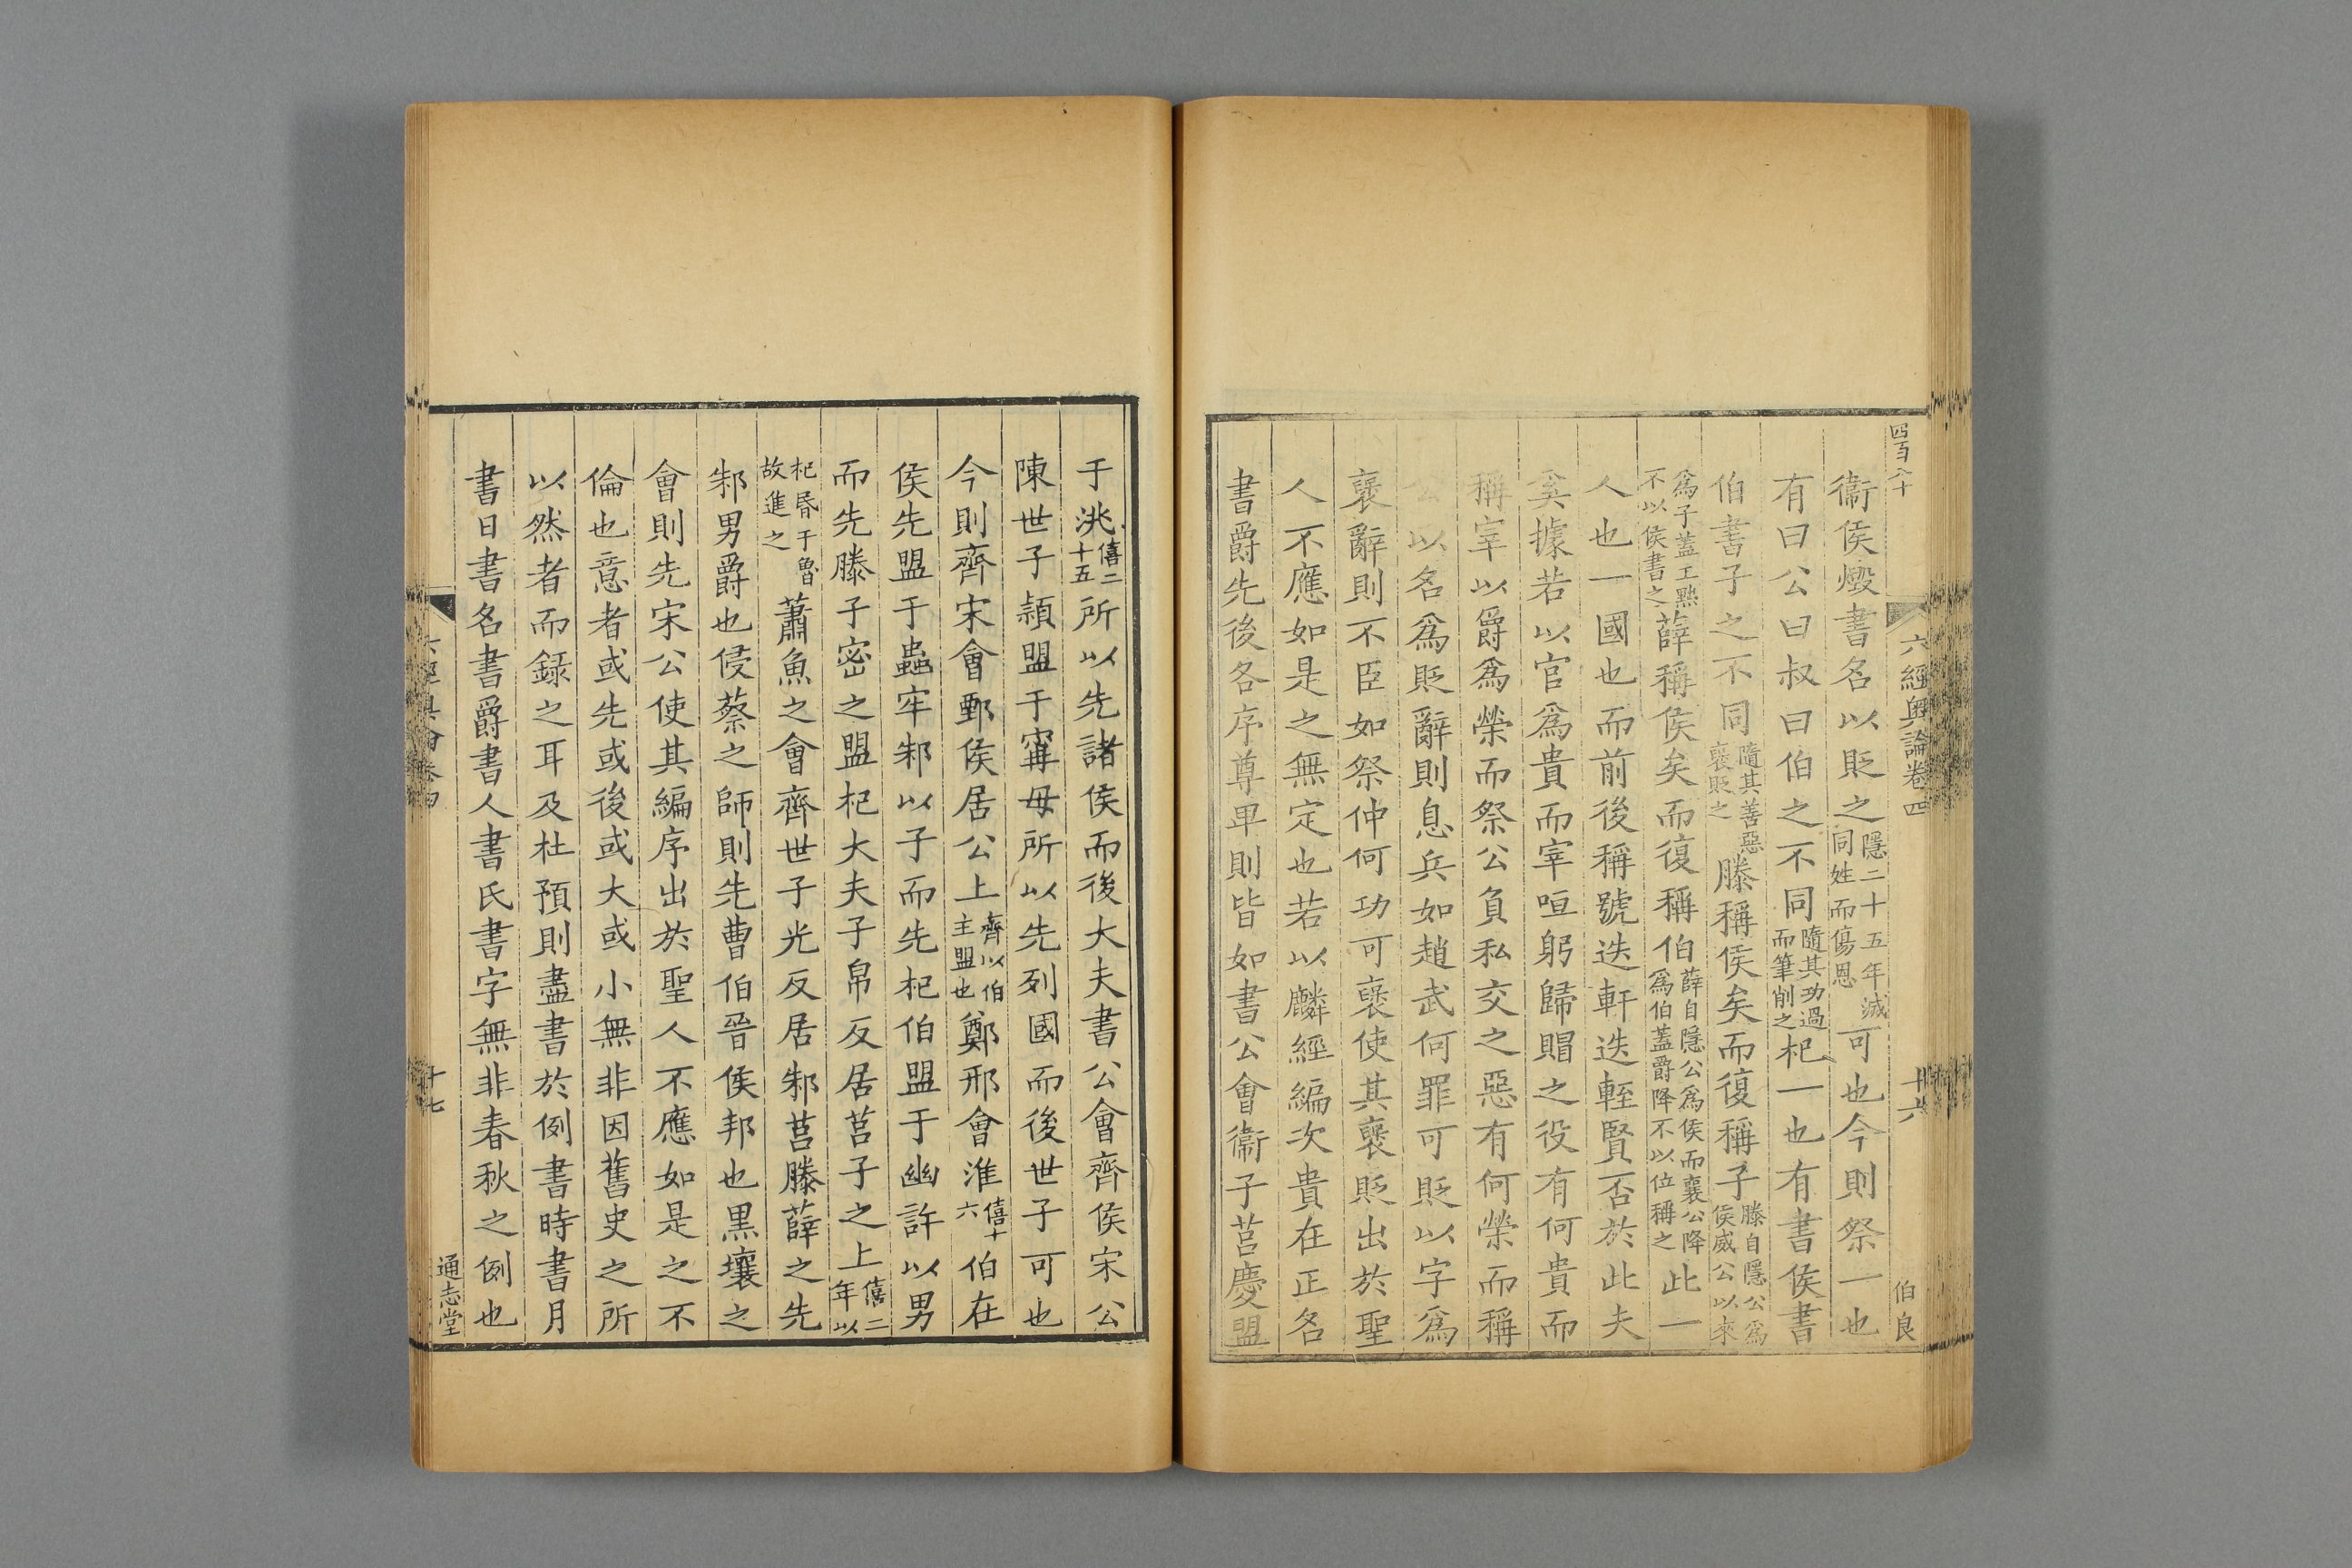 四百八十
六經奧論卷四
十六
伯良
衞侯燬書名以貶之隱二十五年滅同姓而傷恩可也今則祭一也
有曰公曰叔曰伯之不同隨其功過而筆削之杞一也有書侯書
伯書子之不同隨其善惡褒貶之滕稱侯矣而復稱子滕自隱公爲侯威公以來
爲子蓋王黜不以侯書之薛稱侯矣而復稱伯薛自隱公爲侯而襄公降爲伯蓋爵降不以位稱之此一
人也一國也而前後稱號迭軒迭輊賢否於此夫
奚據若以官爲貴而宰咺躬歸賵之役有何貴而
稱宰以爵爲榮而祭公負私交之惡有何榮而稱
公以名爲貶辭則息兵如趙武何罪可貶以字爲
襃辭則不臣如祭仲何功可襃使其襃貶出於聖
人不應如是之無定也若以麟經編次貴在正名
書爵先後各序尊卑則皆如書公會衞子莒慶盟
于洮僖二十五所以先諸侯而後大夫書公會齊侯宋公
陳世子款盟于甯毋所以先列國而後世子可也
今則齊宋會鄄侯居公上齊以伯主盟也鄭邢會淮僖十六伯在
侯先盟于蟲牢邾以子而先杞伯盟于幽許以男
而先滕子密之盟杞大夫子帛反居莒子之上僖二年以
杞昏于魯故進之蕭魚之會齊世子光反居邾莒滕薛之先
邾男爵也侵蔡之師則先曹伯晉侯邦也黑壤之
會則先宋公使其編序出於聖人不應如是之不
倫也意者或先或後或大或小無非因舊史之所
以然者而録之耳及杜預則盡書於例書時書月
書日書名書爵書人書氏書字無非春秋之例也
十七
通志堂